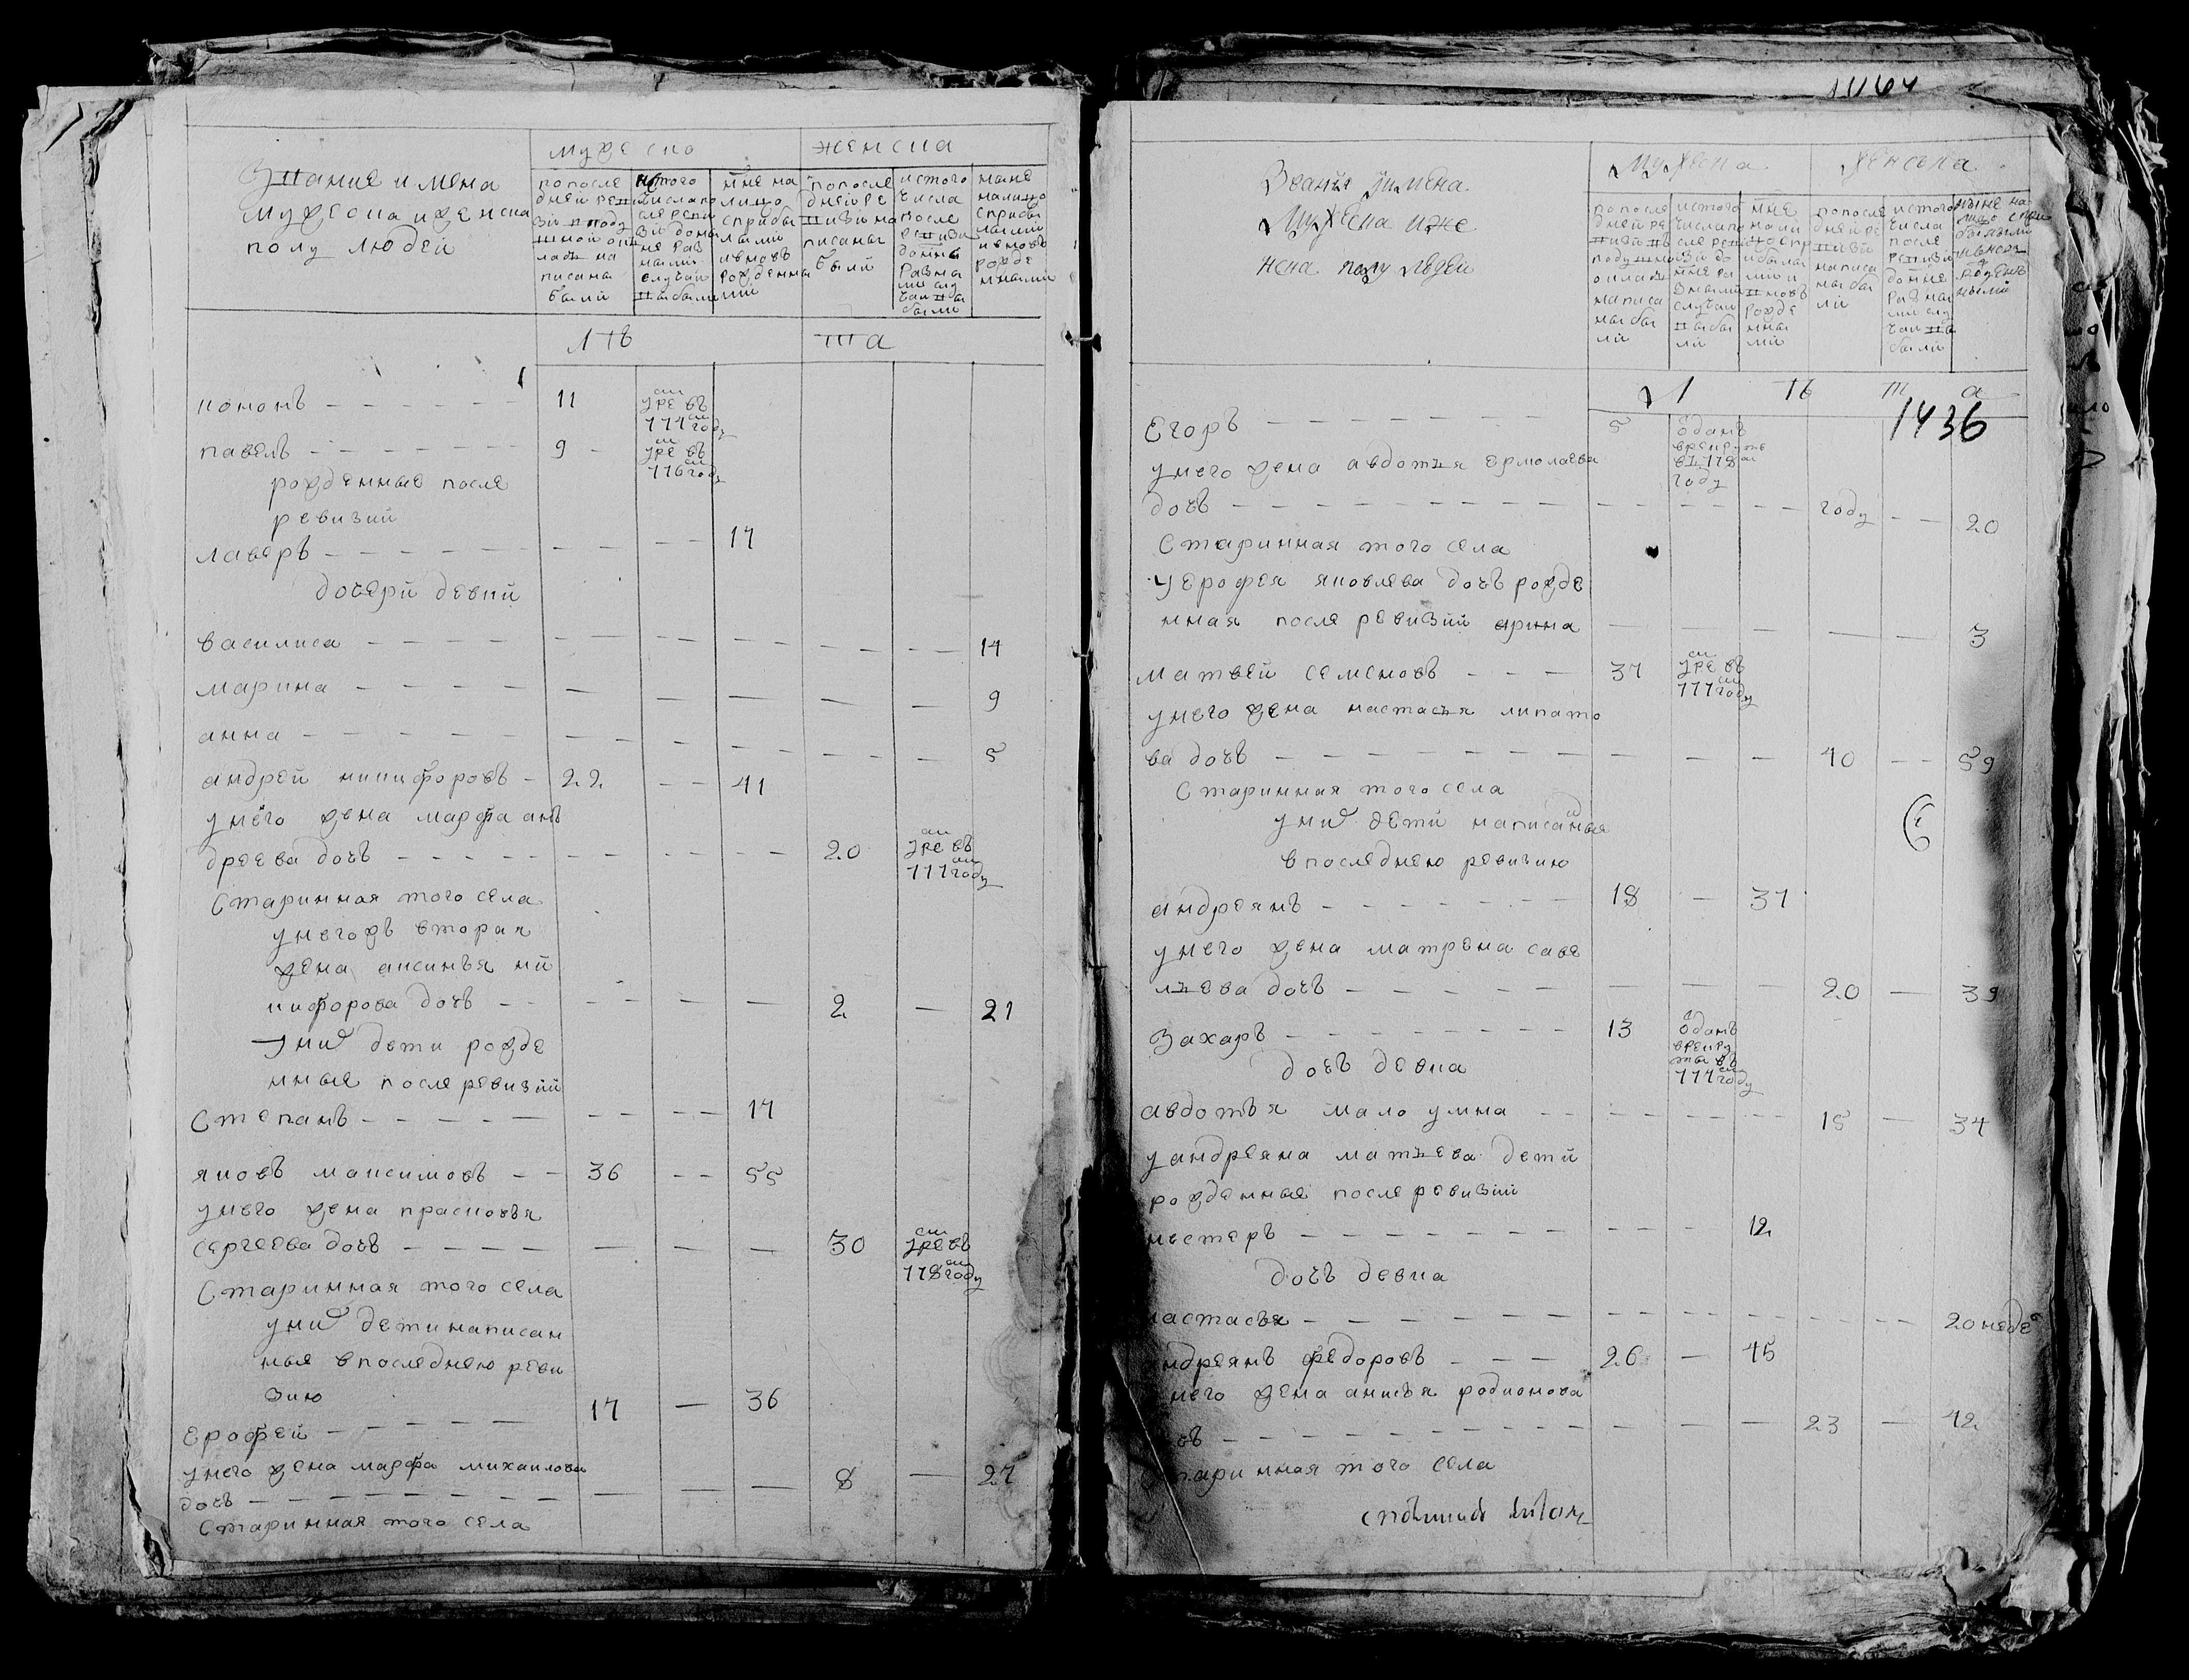 Звание имена
мужеска иженска
полу людей
мужеско
женска
попосле
дней реви
зій вподу
шной окл
ладъ на
писаны
были
истого
числапо
слереви
зій доны
не раз
ными
случаи
выбыли
ныне на
лицо
сприбы
лыми
ивновъ
рожденны
ми
попосле
днейре
визіина
писаны
были
истого
числа
после
ревизи
доныне
разны
ми слу
чаи вы
были
ныне
налицо
сприбы
лыми
ивновъ
рожде
нными
лѣ
та
кононъ 11 умре въ 777м году
павелъ 9 умре въ 776 году
рожденные после
ревизий
лаверъ 17
дочери девки
василиса 14
марина 9
анна 5
андрей никифоровъ 22 41
унего жена марфа ан
дреева дочь 20 умре въ 777 году
Старинная того села
унегожъ вторая
жена аксинья ни
кифорова дочь 2 21
уних дети рожде
нные после ревизий
Степанъ 17
яковъ максимовъ 36 55
унего жена прасковья
сергеева дочь 30 умре въ 778 году
Старинная того села
уних детинаписан
ные впоследнею реви
зию
ерофей 17 36
унего жена марфа михаилова
дочь 8 27
Старинная того села
Званія имена
Мужеска иже
нска полу людей
мужеска
женска
попосле
дней ре
визіи въ
подушно
окладъ
написа
ны бы
ли
истого
числапо
сле реви
зіи до
ныне ра
зными
случаи
выбы
ли
ныне
нали
цоспр
ибылы
ми и
вновъ
рожде
нны
ми
попосле
дней ре
визіи
написа
ны бы
ли
истого
числа
после
ревизи
доныне
разны
ми слу
чаи вы
были
ныне на
лицо спри
былыми
ивновъ
рожден
ными
л ѣ т а
1436
Егоръ 5 Отданъ врекруты въ 778м году
унего жена авдотья ермолаева
дочь году 20
Старинная того села
уерофея яковлева дочь рожде
нная после ревизий арина 3
матвей семеновъ 37 умре въ 777 году
унего жена настасья липато
ва дочь 40 59
Старинная того села
уних дети написаныя
впоследнею ревизию
андреянъ 18 37
унего жена матрена саве
льева дочь 20 39
Захаръ 13 Отданъ врекруты въ 777 году
дочь девка
авдотья мало умна 15 34
уандреяна матвева дети
рожденные после ревизий
нестеръ 12
дочь девка
настасья 20 неде
андреянъ федоровъ 26 45
унего жена анисья родионова
дочь 23 42
Старинная того села